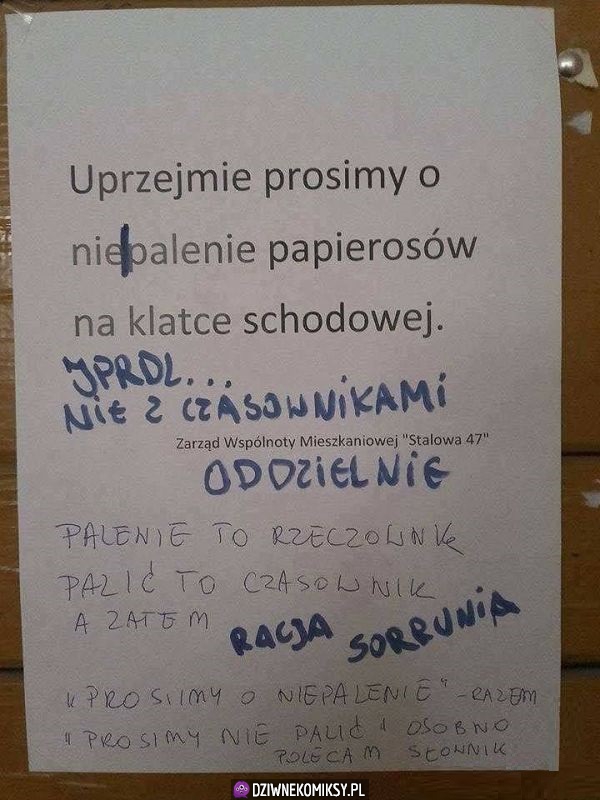 Uprzejmie prosimy o
niepalenie papierosów
na klatce schodowej.
JPRDL...
NIE Z CZASOWNIKAMI
Zarząd Wspólnoty Mieszkaniowej "Stalowa 47"
ODDZIELNIE
PALENIE TO RZECZOWNIK
PALIĆ TO CZASOWNIK
A ZATEM
RACJA SORRUNIA
"PROSIMY O NIEPALENIE" - RAZEM
"PROSIMY NIE PALIĆ" OSOBNO
POLECAM SŁOWNIK
DZIWNEKOMIKSY.PL